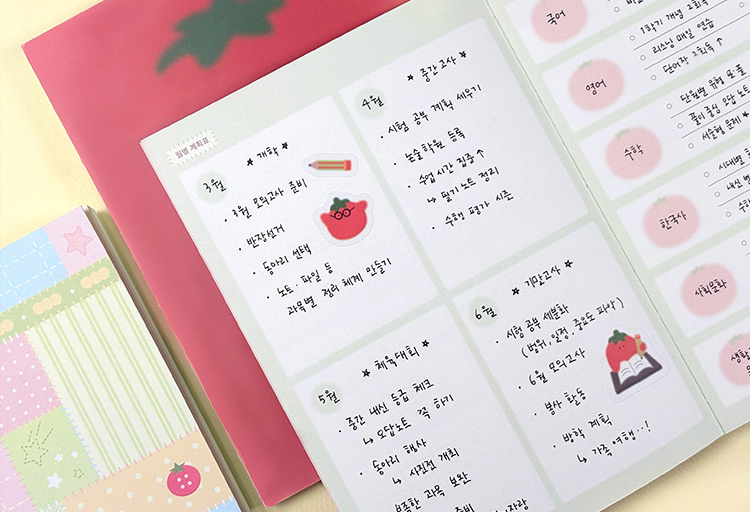 월별 계획표
3월
☆ 개학 ☆
· 3월 모의고사 준비
· 반장선거
· 동아리 선택
· 노트, 파일 등
과목별 정리 체계 만들기
4월
☆ 중간고사 ☆
· 시험 공부 계획 세우기
· 논술학원 등록
· 수업시간 집중 ↑
↳ 필기노트 정리
· 수행 평가 시즌
5월
☆ 체육대회 ☆
· 중간 내신 등급 체크
↳ 오답노트 꼭 하기
· 동아리 행사
↳ 사진전 개최
부족한 과목 보완
준비
6월
☆ 기말고사 ☆
· 시험 공부 세분화
(범위, 일정, 중요도 파악)
· 6월 모의고사
· 봉사 활동
· 방학 계획
↳ 가족 여행··!
국어
영어
○ 1학기 개념 2회독
○ 리스닝 매일 연습
○ 단어장 2회독 ↑
수학
○ 단원별 유형 문풀
○ 풀이 중심 오답노트
○ 서술형 문제 *
한국사
○ 시대별
○ 내신
○ 수행
사회문화
생활